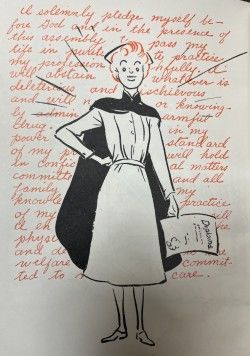 I solemnly pledge myself be-
fore God and in the presence of
this assembly to pass my
life in purity to practise
my profession faithfully. I
will abstain whatever is
deleterious and mischievous
and will or knowing-
ly admin harmful
drug. in my
power standard
of my will hold
in confid al matters
committe and all
family
knowle practice
of my
ll en
physi
and de
welfare commit-
ted to care.
Diploma
in